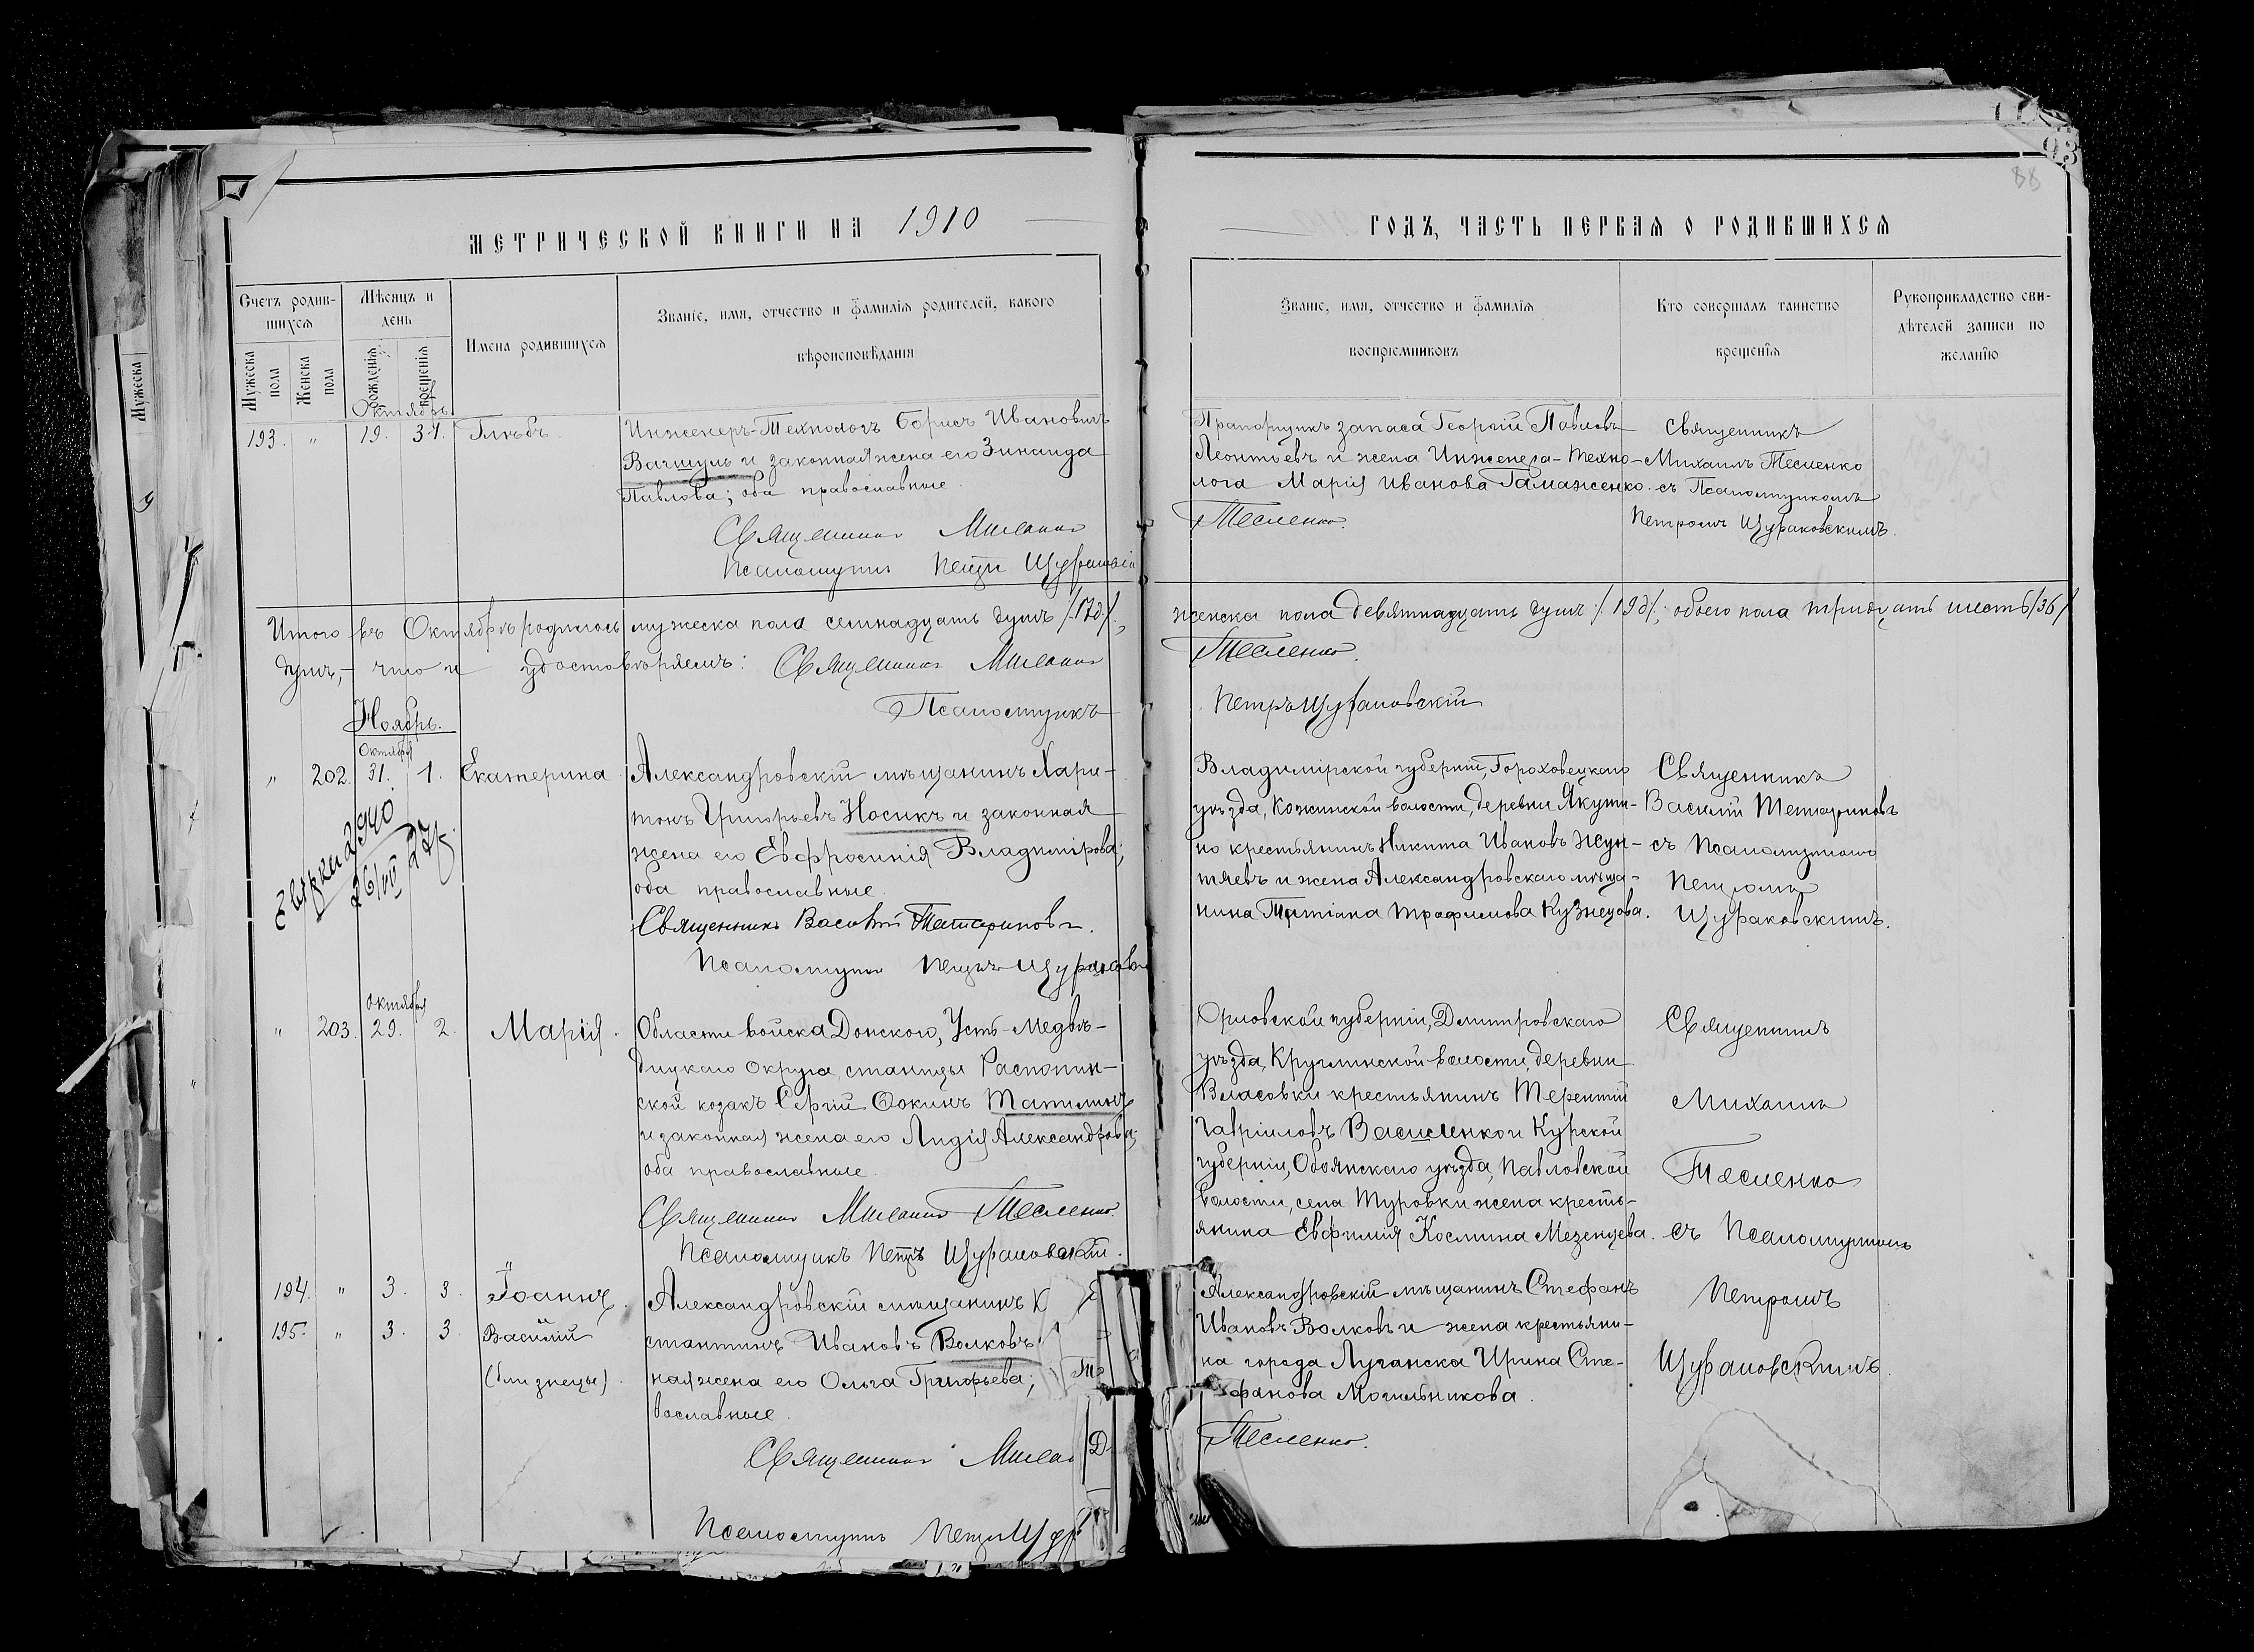 МЕТРИЧЕСКОЙ КНИГИ НА 1910
Счетъ родив-
шихся
Мѣсяцъ и
день
Имена родившихся
Званіе, имя, отчество и фамилія родителей, какого
вѣроисповѣданія
Мужеска
пола
Женска
пола
Рожденія
Крещенія
Мужеска
Октябрь
193. " 19. 31. Глѣбъ.
Инженеръ-Технологъ Борисъ Ивановичъ
и законная жена его Зинаида
Павлова; оба православные.
Священникъ Михаилъ
Псаломщикъ Петръ
Итого въ Октябрѣ родилось мужеска пола семнадцать душъ /17д/,
душъ,- что и удостовѣряемъ: Священникъ Михаилъ
Псаломщикъ
Ноябрь.
Октября
" 202. 31. 1. Екатерина
Александровскій мѣщанинъ Хари-
тонъ Григорьевъ Носикъ и законная
жена его Евфросинія Владимірова;
оба православные.
Священникъ Василій Татариновъ.
Псаломщикъ Петръ
2940
26/VII 27
октября
" 203. 29. 2. Марія.
Области войска Донского, Усть-Медвѣ-
дицкаго округа станицы Распопин-
ской козакъ Сергій Фокинъ
и законная жена его Лидія Александрова;
оба православные.
Священникъ Михаилъ Тесленко.
Псаломщикъ Петръ Щураковскій.
194. " 3. 3. Іоаннъ.
195. " 3. 3. Василій
(близнецы).
Александровскій мѣщанинъ К
стантинъ Ивановъ Волковъ
ная жена его Ольга Григорьева;
вославные.
Священникъ
Псаломщикъ
ГОДЪ, ЧАСТЬ ПЕРВАЯ О РОДИВШИХСЯ
93
88
Званіе, имя, отчество и фамилія
воспріемниковъ
Кто совершалъ таинство
крещенія
Рукоприкладство сви-
дѣтелей записи по
желанію
Прапорщикъ запаса Георгій Павловъ
Леонтьевъ и жена Инженера-Техно-
лога Марія Иванова Гамаженко.
Тесленко.
Священникъ
Михаилъ Тесленко
съ Псаломщикомъ
Петромъ Щураковскимъ.
женска пола девятнадцать душъ /19д/; обоего пола тридцать шесть /36/
Тесленко.
Петръ Щураковскій
Владимірской губерніи, Гороховецкаго
уѣзда, Кожинской волости, деревни Якути-
но крестьянинъ Никита Ивановъ
и жена Александровскаго мѣща-
нина Татіана Трофимова Кузнецова.
Священникъ
Василій Татариновъ
съ Псаломщикомъ
Петромъ
Щураковскимъ.
Орловской губерніи, Дмитровскаго
уѣзда, Круглинской волости, деревни
Власовки крестьянинъ Терентій
Гавріиловъ Василенко и Курской
губерніи, Обоянскаго уѣзда, Павловской
волости, села Туровки жена кресть-
янина Евфимія Космина Мезенцева.
Священникъ
Михаилъ
Тесленко
съ Псаломщикомъ
Петромъ
Щураковскимъ.
Александровскій мѣщанинъ Стефанъ
Ивановъ Волковъ и жена крестьяни-
на города Луганска Ирина Сте-
фанова Могильникова.
Тесленко.